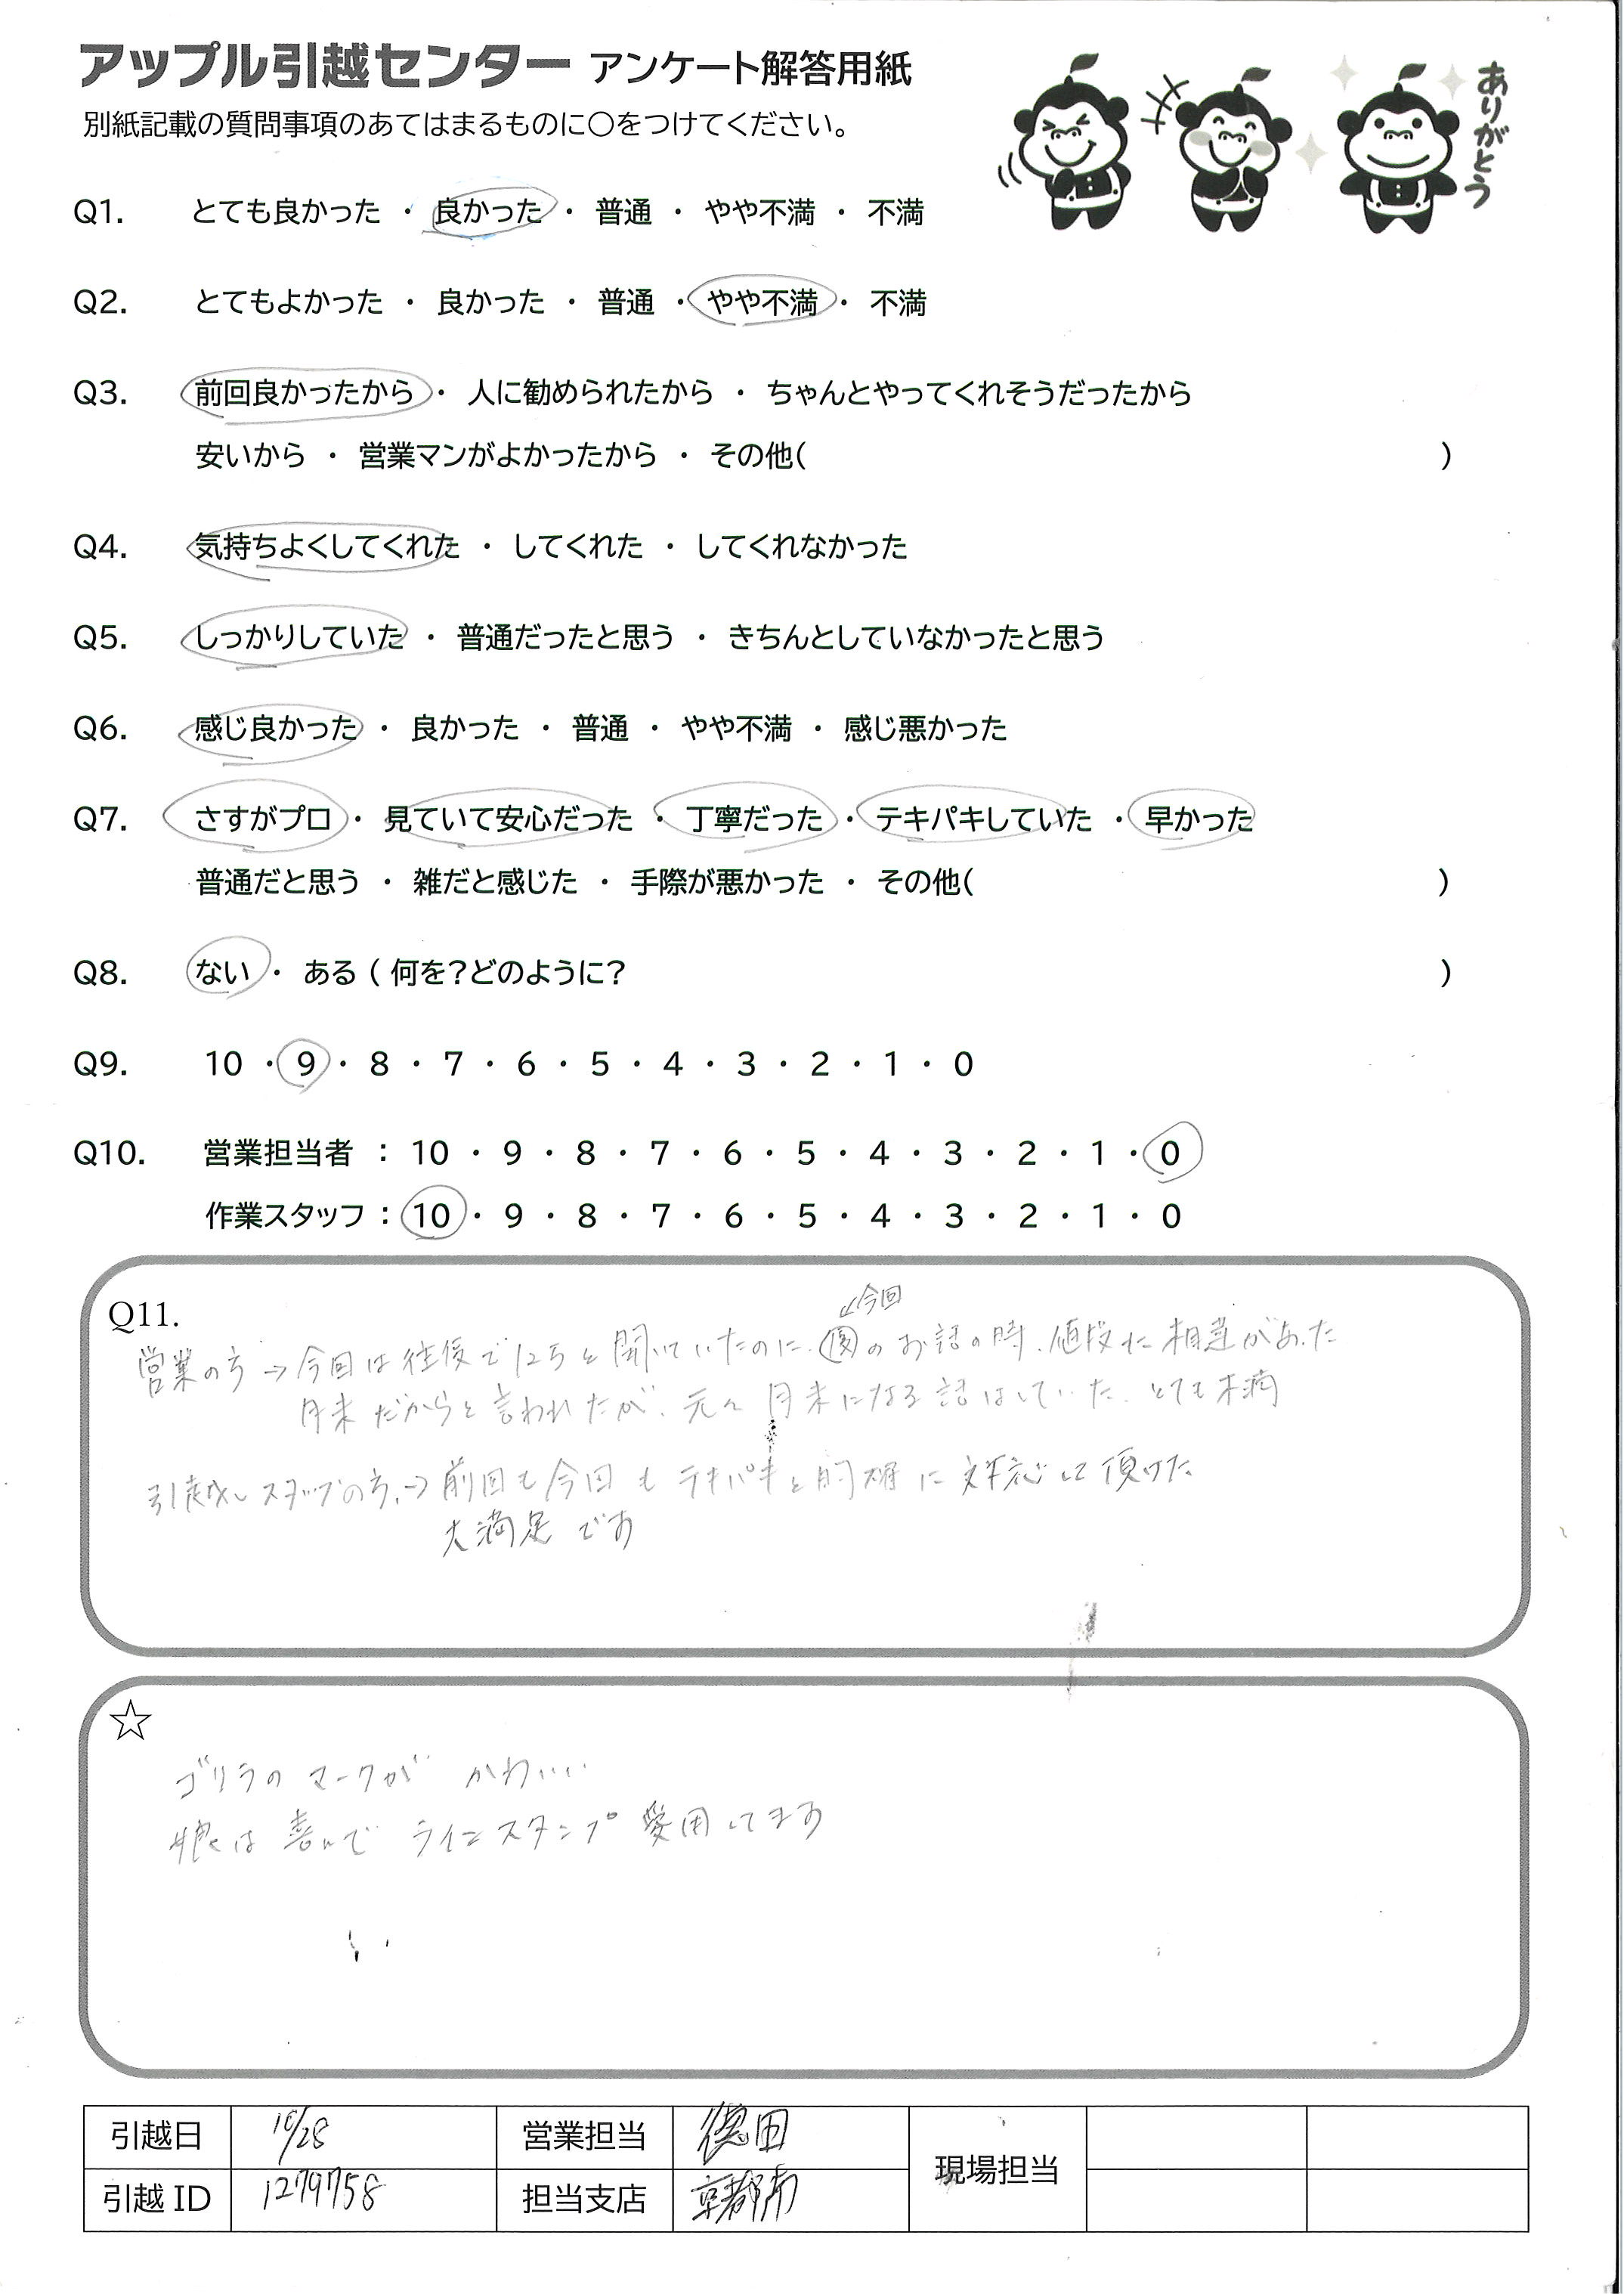 アップル引越センター アンケート解答用紙
別紙記載の質問事項のあてはまるものに○をつけてください。
ありがとう
Q1. とても良かった ・ 良かった ・ 普通 ・ やや不満 ・ 不満
Q2. とてもよかった ・ 良かった ・ 普通 ・ やや不満 ・ 不満
Q3. 前回良かったから ・ 人に勧められたから ・ ちゃんとやってくれそうだったから
安いから ・ 営業マンがよかったから ・ その他( )
Q4. 気持ちよくしてくれた ・ してくれた ・ してくれなかった
Q5. しっかりしていた ・ 普通だったと思う ・ きちんとしていなかったと思う
Q6. 感じ良かった ・ 良かった ・ 普通 ・ やや不満 ・ 感じ悪かった
Q7. さすがプロ ・ 見ていて安心だった ・ 丁寧だった ・ テキパキしていた ・ 早かった
普通だと思う ・ 雑だと感じた ・ 手際が悪かった ・ その他( )
Q8. ない ・ ある ( 何を?どのように? )
Q9. 10 ・ 9 ・ 8 ・ 7 ・ 6 ・ 5 ・ 4 ・ 3 ・ 2 ・ 1 ・ 0
Q10. 営業担当者 : 10 ・ 9 ・ 8 ・ 7 ・ 6 ・ 5 ・ 4 ・ 3 ・ 2 ・ 1 ・ 0
作業スタッフ : 10 ・ 9 ・ 8 ・ 7 ・ 6 ・ 5 ・ 4 ・ 3 ・ 2 ・ 1 ・ 0
Q11.
今回
営業の方→今回は往復で12万と聞いていたのに、のお話の時、値段に相違があった
月末だからと言われたが、元々月末になる話はしていた。とても不満
引越しスタッフの方→前回も今回もテキパキと的確に対応して頂けた
大満足です
☆
ゴリラのマークが かわいい
娘は喜んで ラインスタンプ愛用してます
引越日 10/28 営業担当 徳田 現場担当
引越ID 1279758 担当支店 京都南